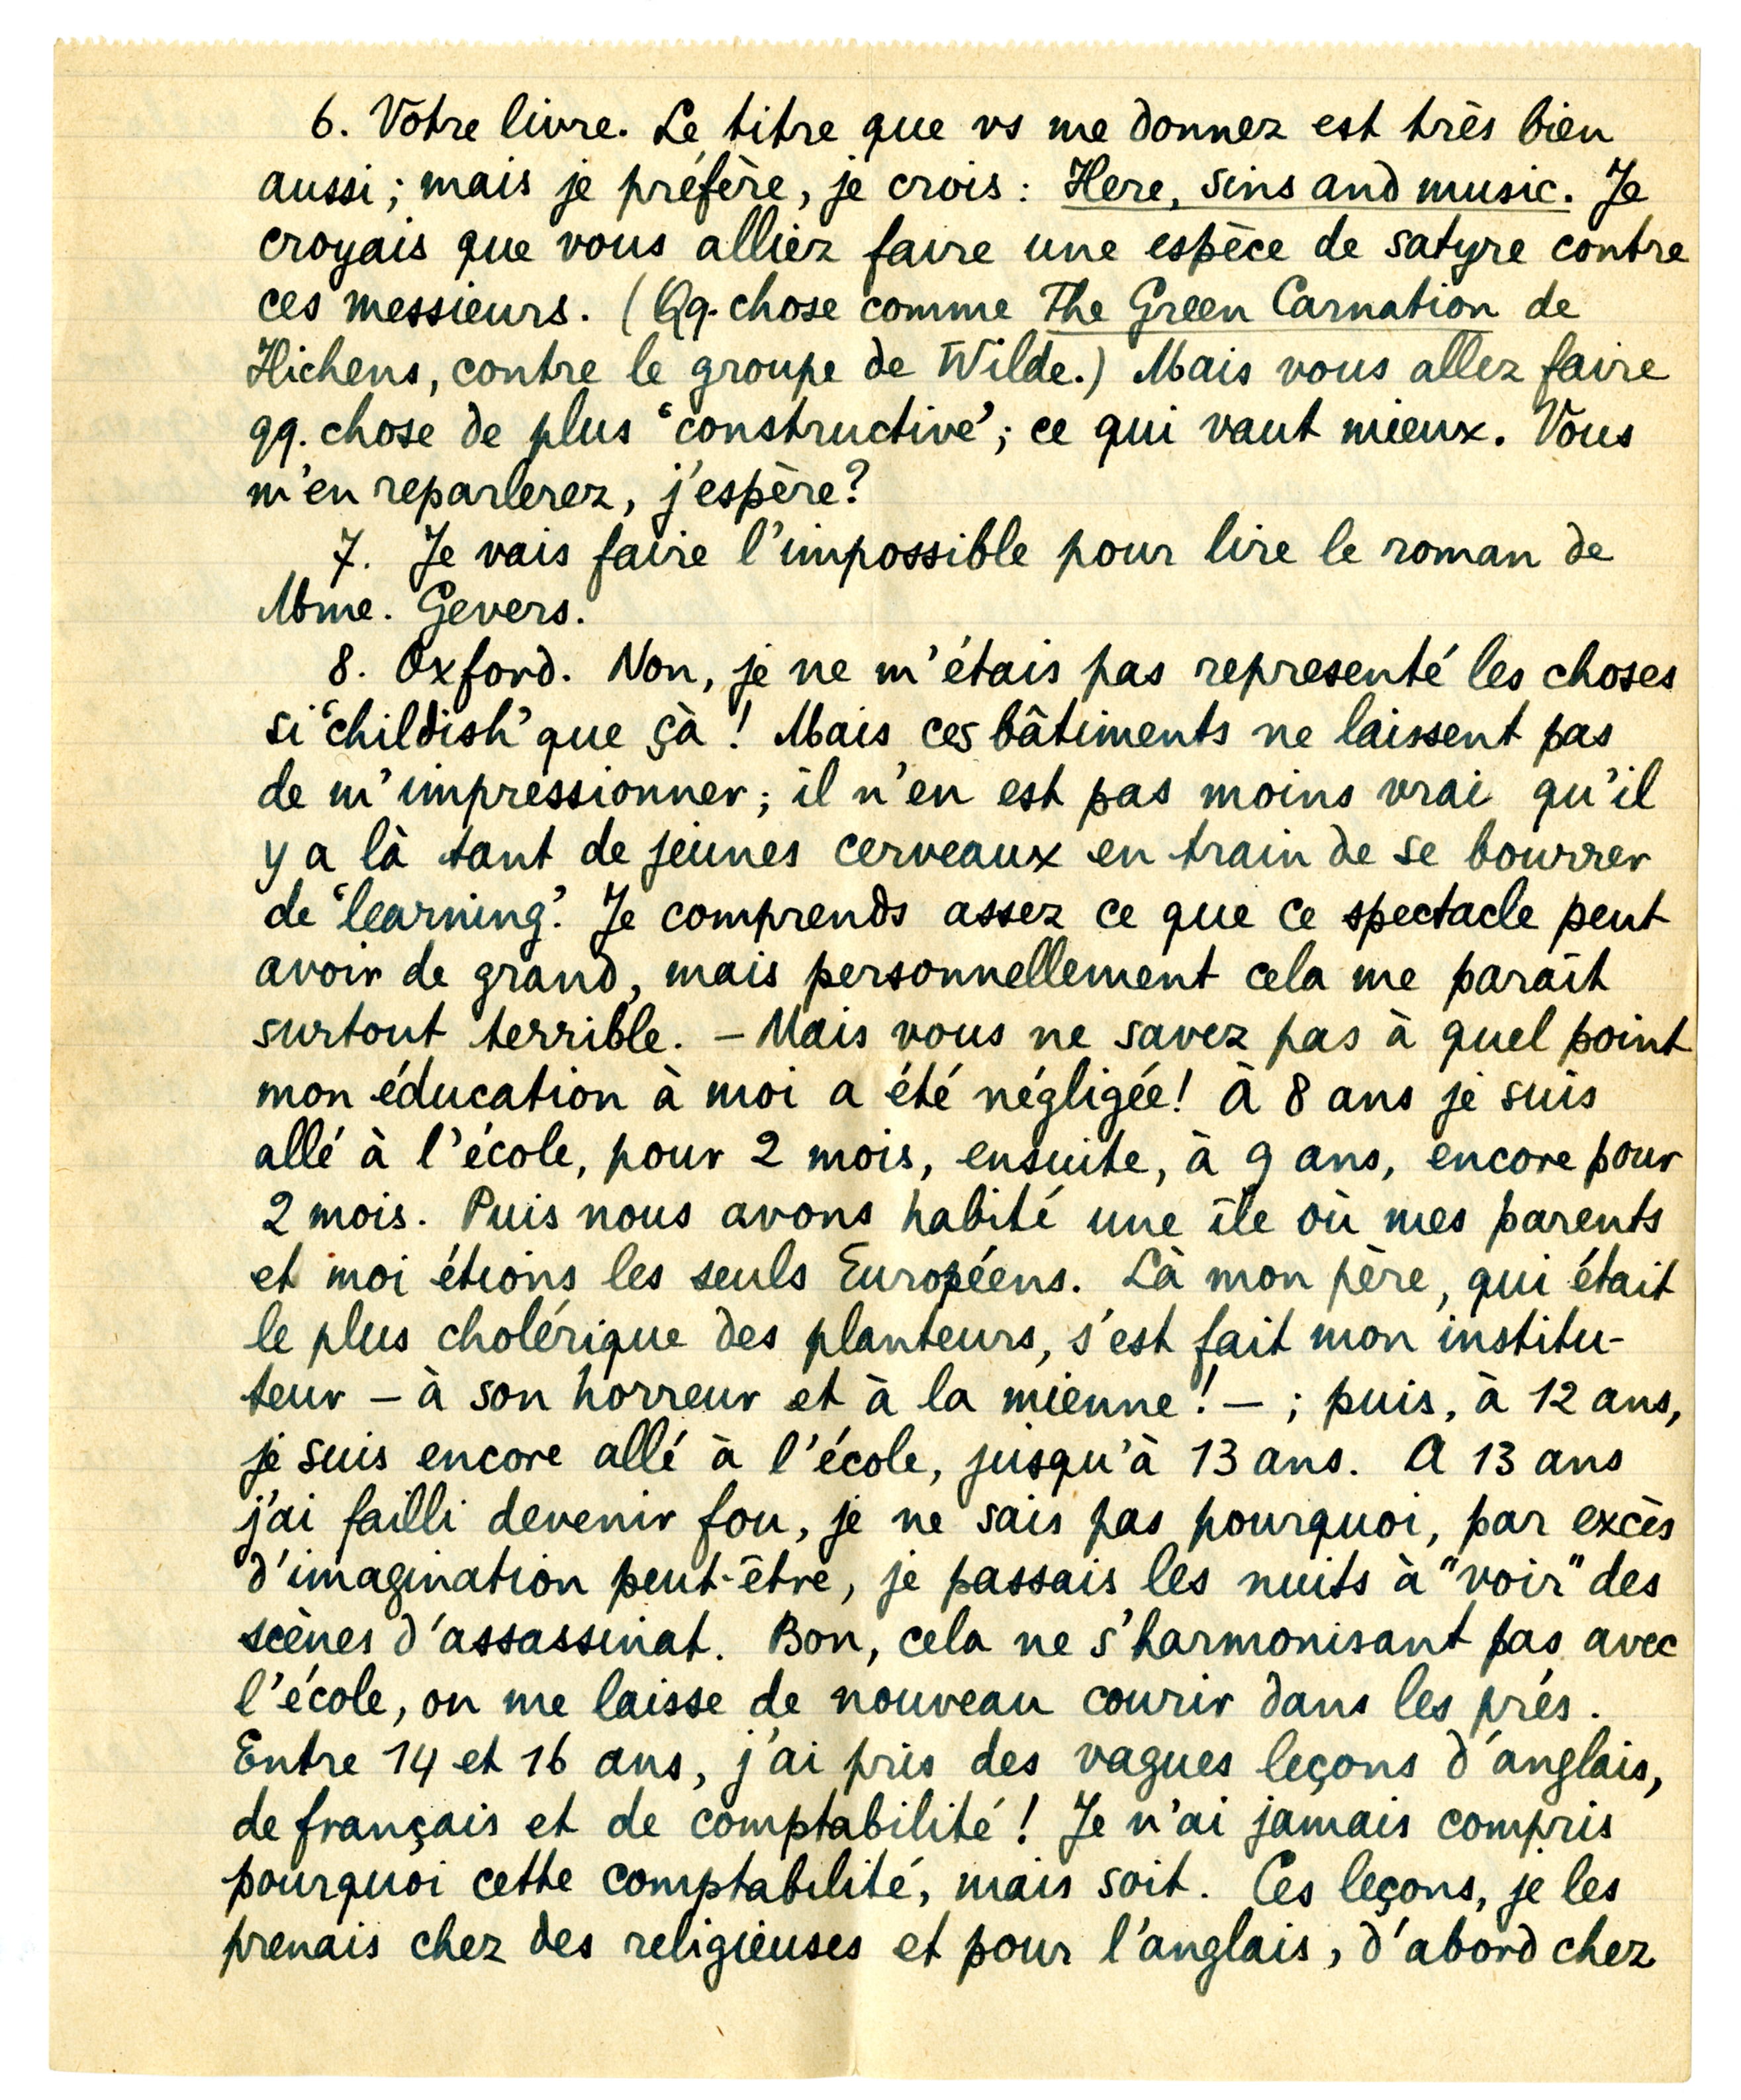 6. Votre livre. Le titre que vs me donnez est très bien
aussi; mais je préfère, je crois: Here, sins and music. Je
croyais que vous alliez faire une espèce de satyre contre
ces messieurs. (Qq. chose comme The Green Carnation de
Hichens, contre le groupe de Wilde.) Mais vous allez faire
qq. chose de plus ‘constructive’; ce qui vaut mieux. Vous
m'en reparlerez, j'espère?
7. Je vais faire l'impossible pour lire le roman de
Mme. Gevers.
8. Oxford. Non, je ne m'étais pas representé les choses
si ‘childish’ que çà! Mais ces bâtiments ne laissent pas
de m'impressionner; il n'en est pas moins vrai qu'il
y a là tant de jeunes cerveaux en train de se bourrer
de ‘learning’. Je comprends assez ce que ce spectacle peut
avoir de grand, mais personnellement cela me paraît
surtout terrible. – Mais vous ne savez pas à quel point
mon éducation à moi a été négligée! À 8 ans je suis
allé à l'école, pour 2 mois, ensuite, à 9 ans, encore pour
2 mois. Puis nous avons habité une île où mes parents
et moi étions les seuls Européens. Là mon père, qui était
le plus cholérique des planteurs, s'est fait mon institu-
teur – à son horreur et à la mienne! – ; puis, à 12 ans,
je suis encore allé à l'école, jusqu'à 13 ans. A 13 ans
j'ai failli devenir fou, je ne sais pas pourquoi, par excès
d'imagination peut-être, je passais les nuits à "voir" des
scènes d'assassinat. Bon, cela ne s'harmonisant pas avec
l'école, on me laisse de nouveau courir dans les prés.
Entre 14 et 16 ans, j'ai pris des vagues leçons d'anglais,
de français et de comptabilité! Je n'ai jamais compris
pourquoi cette comptabilité, mais soit. Ces leçons, je les
prenais chez des religieuses et pour l'anglais, d'abord chez